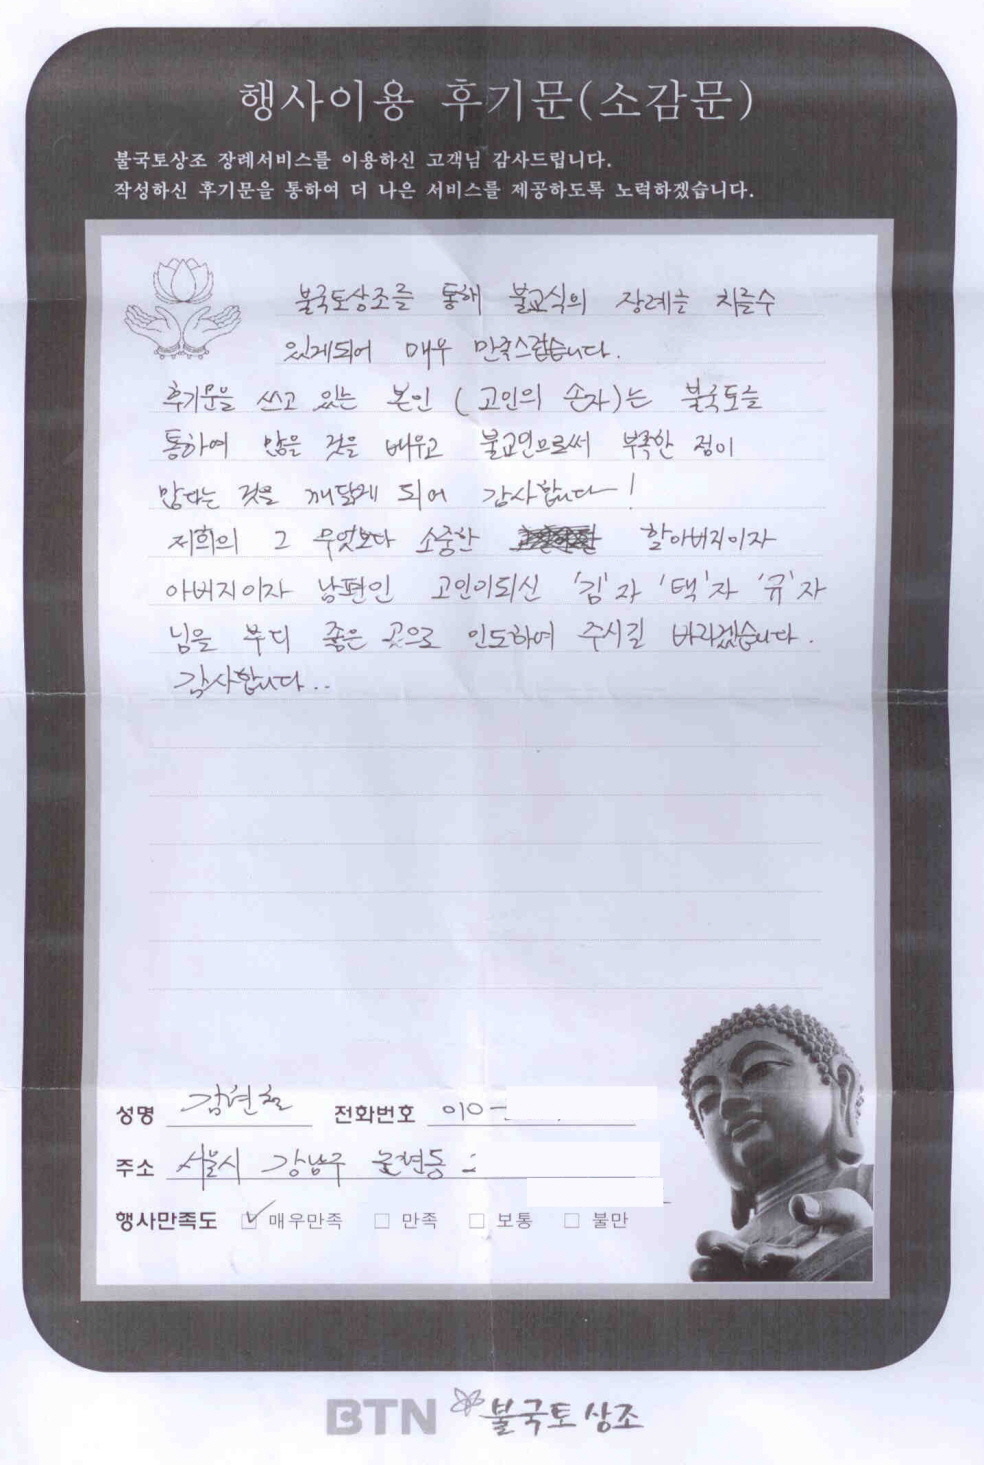 행사이용 후기문(소감문)
불국토상조 장례서비스를 이용하신 고객님 감사드립니다.
작성하신 후기문을 통하여 더 나은 서비스를 제공하도록 노력하겠습니다.
불국토상조를 통해 불교식의 장례를 치를수
있게되어 매우 만족스럽습니다.
후기문을 쓰고 있는 본인 (고인의 손자)는 불국토를
통하여 많은 것을 배우고 불교인으로써 부족한 점이
많다는 것을 깨닫게 되어 감사합니다!
저희의 그 무엇보다 소중한 할아버지이자
아버지이자 남편인 고인이되신 '김'자 '택'자 '규'자
님을 부디 좋은 곳으로 인도하여 주시길 바라겠습니다.
감사합니다..
성명 김현철 전화번호 010-
주소 서울시 강남구
행사만족도 매우만족 만족 보통 불만
BTN 불국토상조